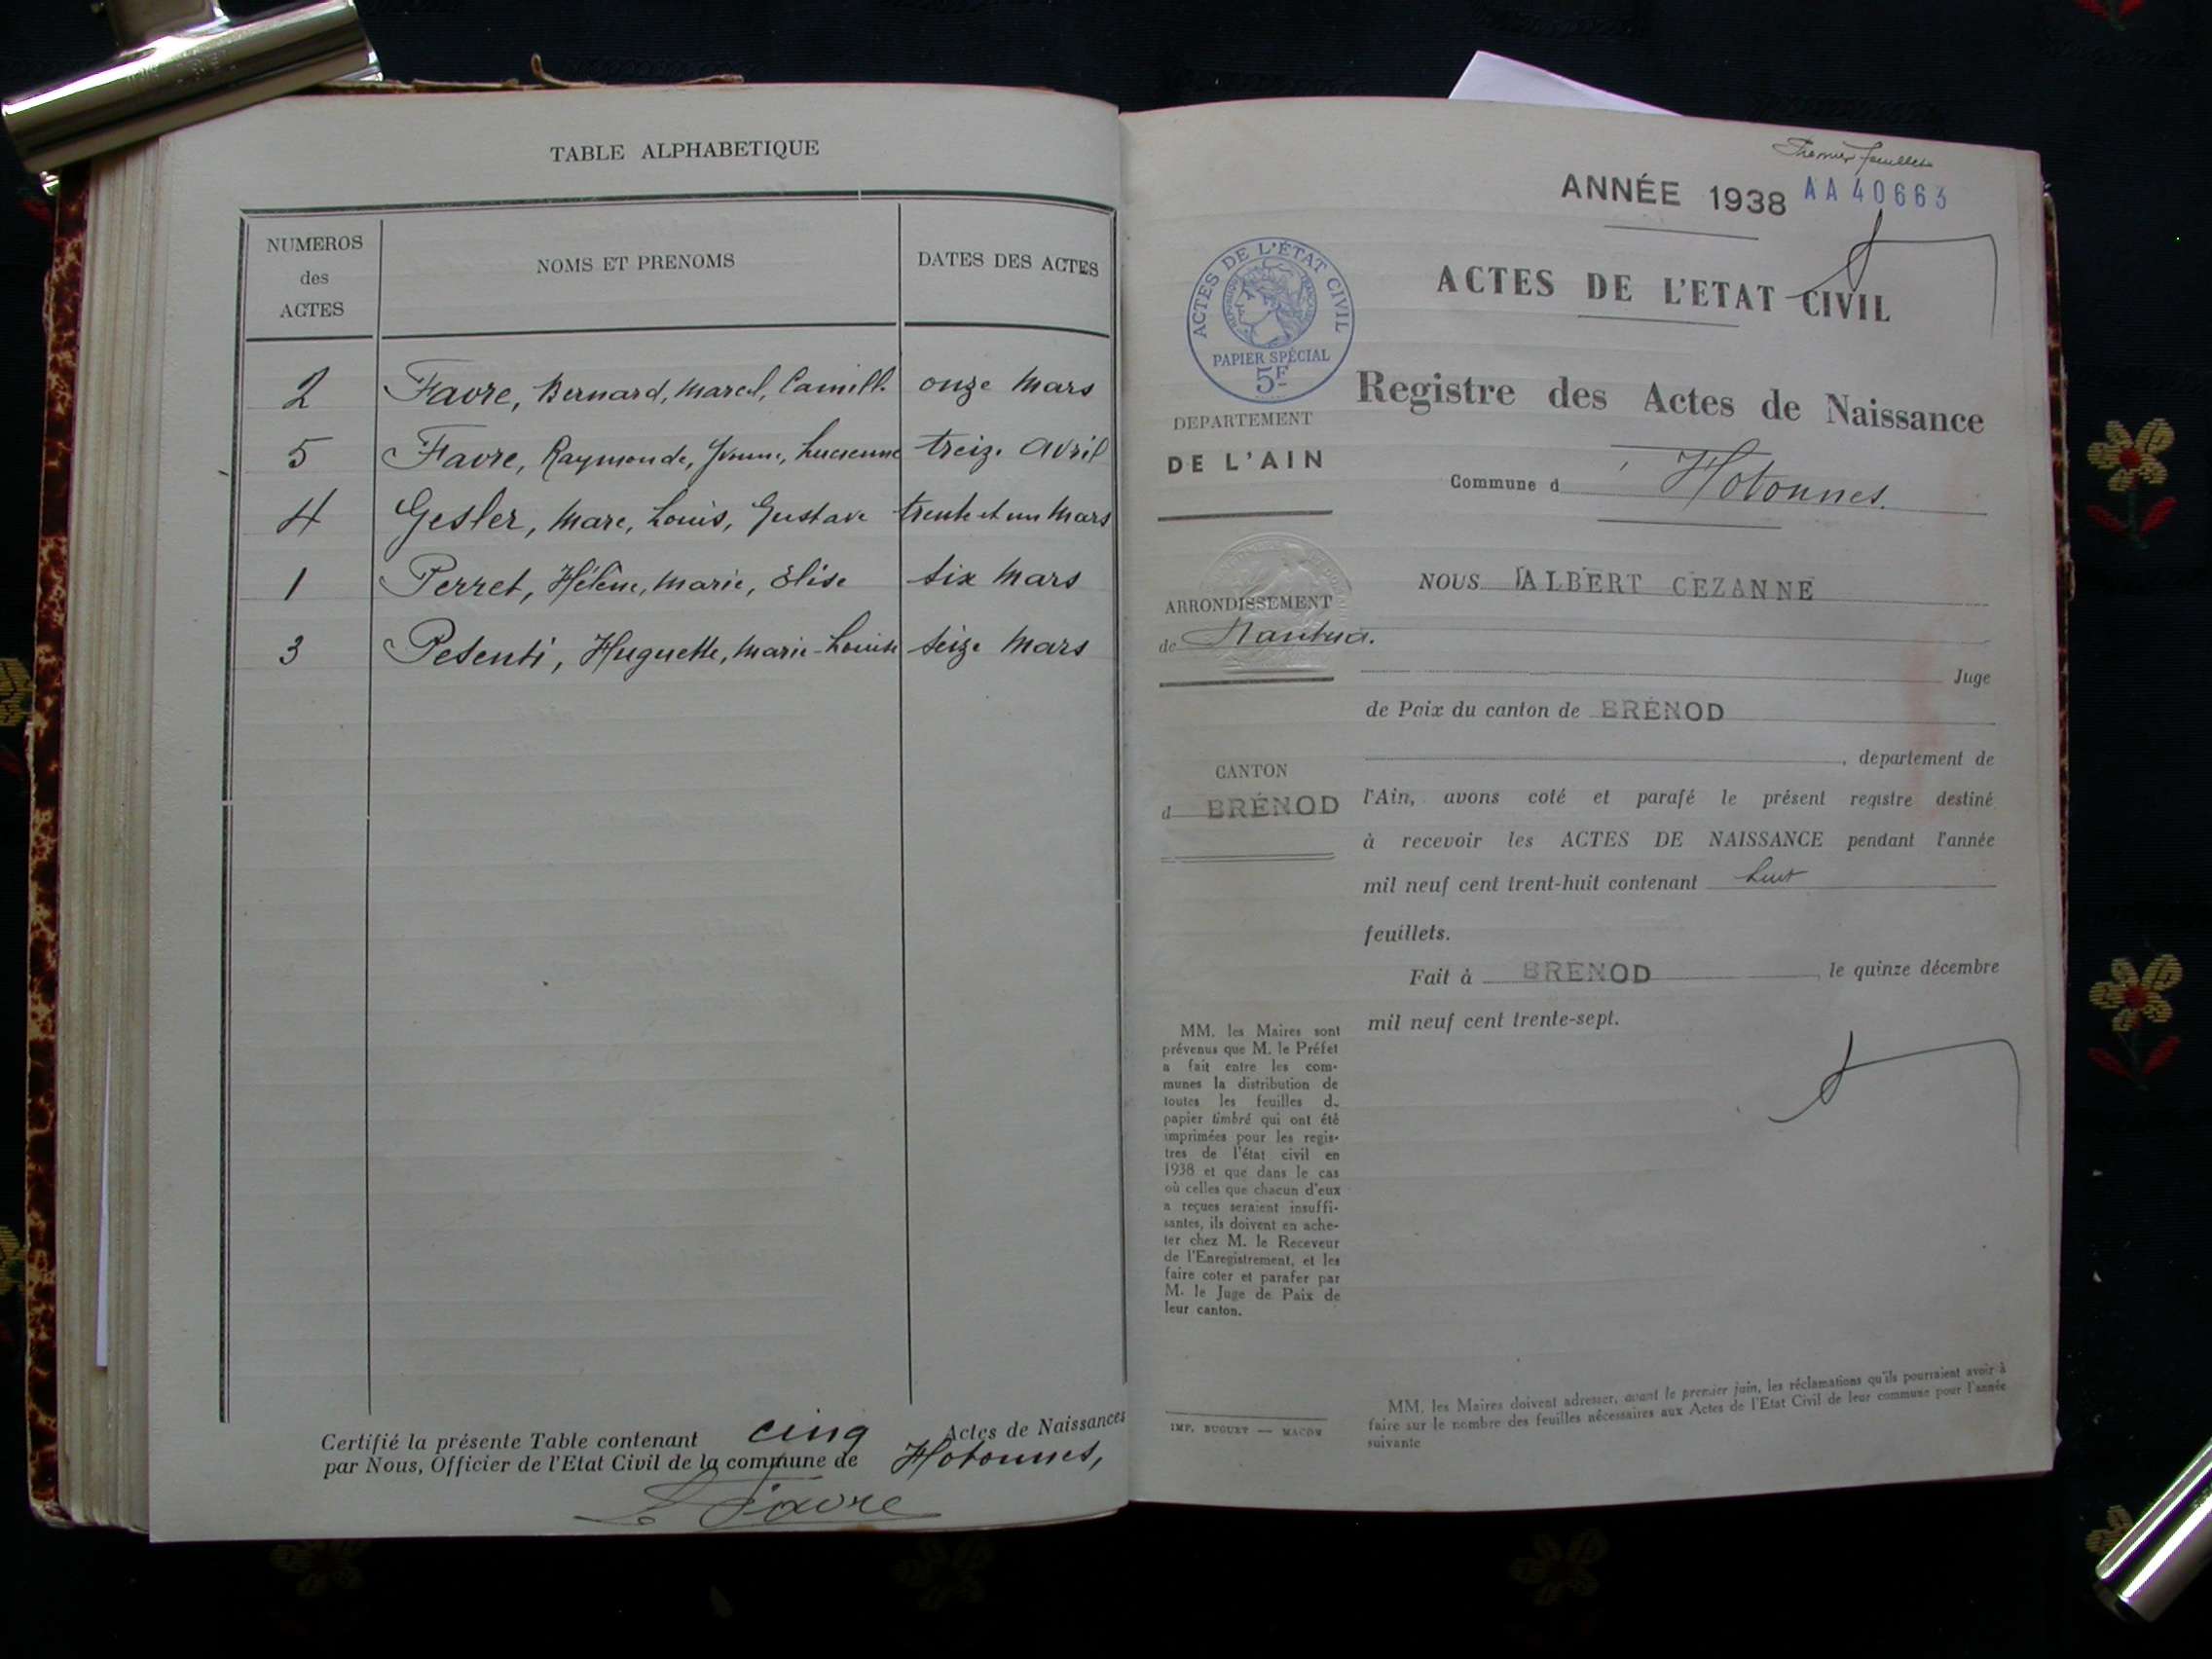 TABLE ALPHABETIQUE
NUMEROS
des
ACTES
NOMS ET PRENOMS
DATES DES ACTES
2 Favre, Bernard, Marcel, Camille onze Mars
5 Favre, Raymonde, Yvonne, Lucienne treize Avril
4 Gesler, Marc, Louis, Gustave trente et un Mars
1 Perret, Hélène, Marie, Elise six Mars
3 Pesenti, Huguette, Marie-Louise seize Mars
Certifié la présente Table contenant cinq Actes de Naissances
par Nous, Officier de l'Etat Civil de la commune de Hotonnes,
Favre
Premier feuillet
ANNÉE 1938 AA 40663
ACTES DE L'ÉTAT CIVIL
RÉPUBLIQUE FRANÇAISE
PAPIER SPÉCIAL
5F
ACTES DE L'ETAT CIVIL
Registre des Actes de Naissance
Commune d Hotonnes.
DEPARTEMENT
DE L'AIN
ARRONDISSEMENT
de Nantua.
CANTON
d BRÉNOD
NOUS ALBERT CEZANNE
Juge
de Paix du canton de BRÉNOD
, departement de
l'Ain, avons coté et parafé le présent registre destiné
à recevoir les ACTES DE NAISSANCE pendant l'année
mil neuf cent trent-huit contenant huit
feuillets.
Fait à BRENOD, le quinze décembre
mil neuf cent trente-sept.
MM. les Maires sont
prévenus que M. le Préfet
a fait entre les com-
munes la distribution de
toutes les feuilles d
papier timbré qui ont été
imprimées pour les regis-
tres de l'état civil en
1938 et que dans le cas
où celles que chacun d'eux
a reçues seraient insuffi-
santes, ils doivent en ache-
ter chez M. le Receveur
de l'Enregistrement, et les
faire coter et parafer par
M. le Juge de Paix de
leur canton.
IMP. BUGUET — MACON
MM. les Maires doivent adresser, avant le premier juin, les réclamations qu'ils pourraient avoir à
faire sur le nombre des feuilles nécessaires aux Actes de l'Etat Civil de leur commune pour l'année
suivante